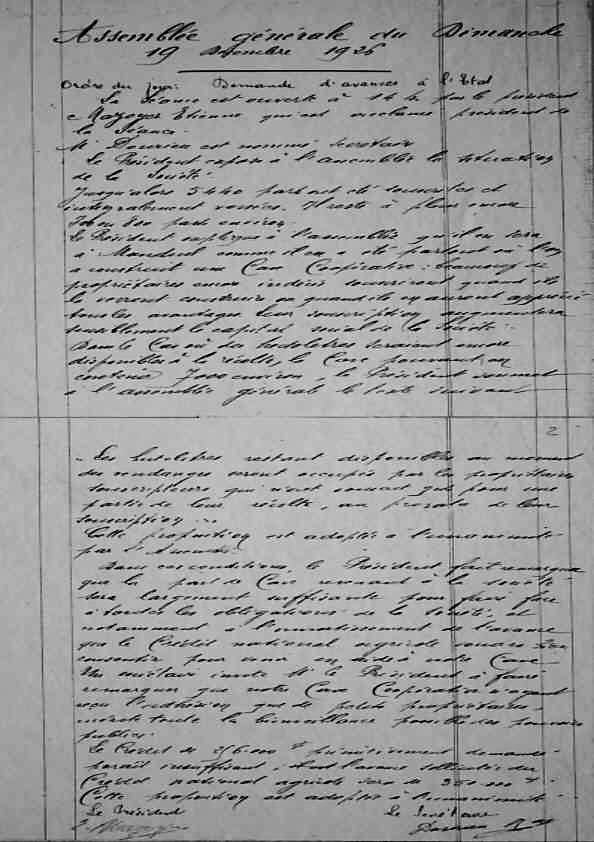 Assemblée générale du Dimanche
19 Décembre 1926
Ordre du jour: Demande d'avances à l'Etat
La Séance est ouverte à 14 h par le président
Mazoyer Etienne qui est proclamé président de
la Séance.
M. est nommé secrétaire
Le Président expose à l'assemblée la situation
de la Société.
Jusqu'alors 5440 parts ont été souscrites et
intégralement versées. Il reste à placer encore
800 parts environ
Le Président explique à l'assemblée qu'il en sera
à Manduel comme il en a été partout où l'on
a construit une Cave Coopérative: beaucoup de
propriétaires encore indécis souscriront quand ils
la verront construire ou quand ils en auront apprécié
tous les avantages. Leur souscription augmentera
sensiblement le capital social de la Société.
Dans le Cas où des hectolitres seraient encore
disponibles à la récolte, la Cave pouvant en
contenir 7000 environ, le Président soumet
à l'assemblée générale le texte suivant
2
"Les hectolitres restant disponibles au moment
des vendanges seront occupés par les propriétaires
souscripteurs qui n'ont souscrit que pour une
partie de leur récolte, au prorata de leur
souscription ...
Cette proposition est adoptée à l'unanimité
par l'Assemblée.
Dans ces conditions, le Président fait remarquer
que la part de Cave revenant à la société
sera largement suffisante pour faire face
à toutes les obligations de la Société, et
notamment à l'amortissement de l'avance
que le Crédit national agricole voudra bien
consentir pour venir en aide à notre Cave
Un sociétaire invite M. le Président à faire
remarquer que notre Cave Coopérative n'ayant
reçu l'adhésion que de petits propriétaires
mérite toute la bienveillance possible des pouvoirs
publics.
Le Crédit de primitivement demandé
paraît insuffisant. L'avance sollicitée du
Crédit national agricole sera de 250.000 f
Cette proposition est adoptée à l'unanimité
Le Président Le Secrétaire